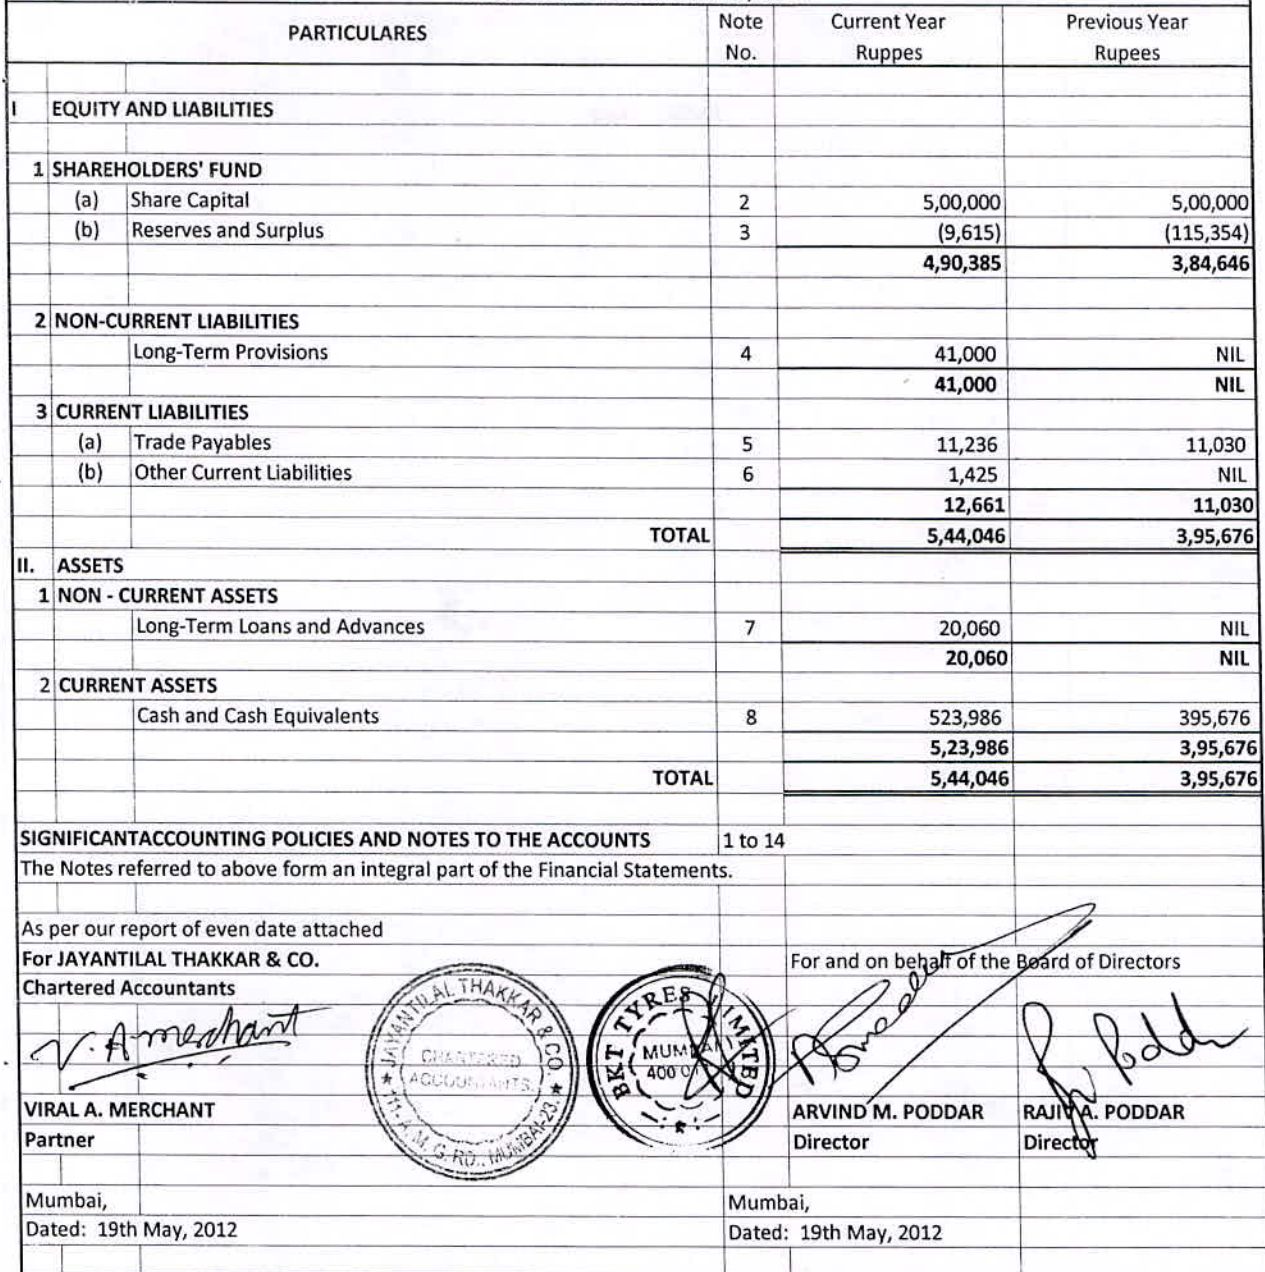 PARTICULARES Note No. Current Year Ruppes Previous Year Rupees
I EQUITY AND LIABILITIES
1 SHAREHOLDERS' FUND
(a) Share Capital 2 5,00,000 5,00,000
(b) Reserves and Surplus 3 (9,615) (115,354)
4,90,385 3,84,646
2 NON-CURRENT LIABILITIES
Long-Term Provisions 4 41,000 NIL
41,000 NIL
3 CURRENT LIABILITIES
(a) Trade Payables 5 11,236 11,030
(b) Other Current Liabilities 6 1,425 NIL
12,661 11,030
TOTAL 5,44,046 3,95,676
II. ASSETS
1 NON - CURRENT ASSETS
Long-Term Loans and Advances 7 20,060 NIL
20,060 NIL
2 CURRENT ASSETS
Cash and Cash Equivalents 8 523,986 395,676
5,23,986 3,95,676
TOTAL 5,44,046 3,95,676
SIGNIFICANTACCOUNTING POLICIES AND NOTES TO THE ACCOUNTS 1 to 14
The Notes referred to above form an integral part of the Financial Statements.
As per our report of even date attached
For JAYANTILAL THAKKAR & CO. For and on behalf of the Board of Directors
Chartered Accountants
V. A merchant
JAYANTILAL THAKKAR & CO.
CHARTERED
ACCOUNTANTS.
111-A, M. G. RD., MUMBAI-23.
BKT TYRES LIMITED
MUMBAI
400 01
VIRAL A. MERCHANT ARVIND M. PODDAR RAJIV A. PODDAR
Partner Director Director
Mumbai, Mumbai,
Dated: 19th May, 2012 Dated: 19th May, 2012